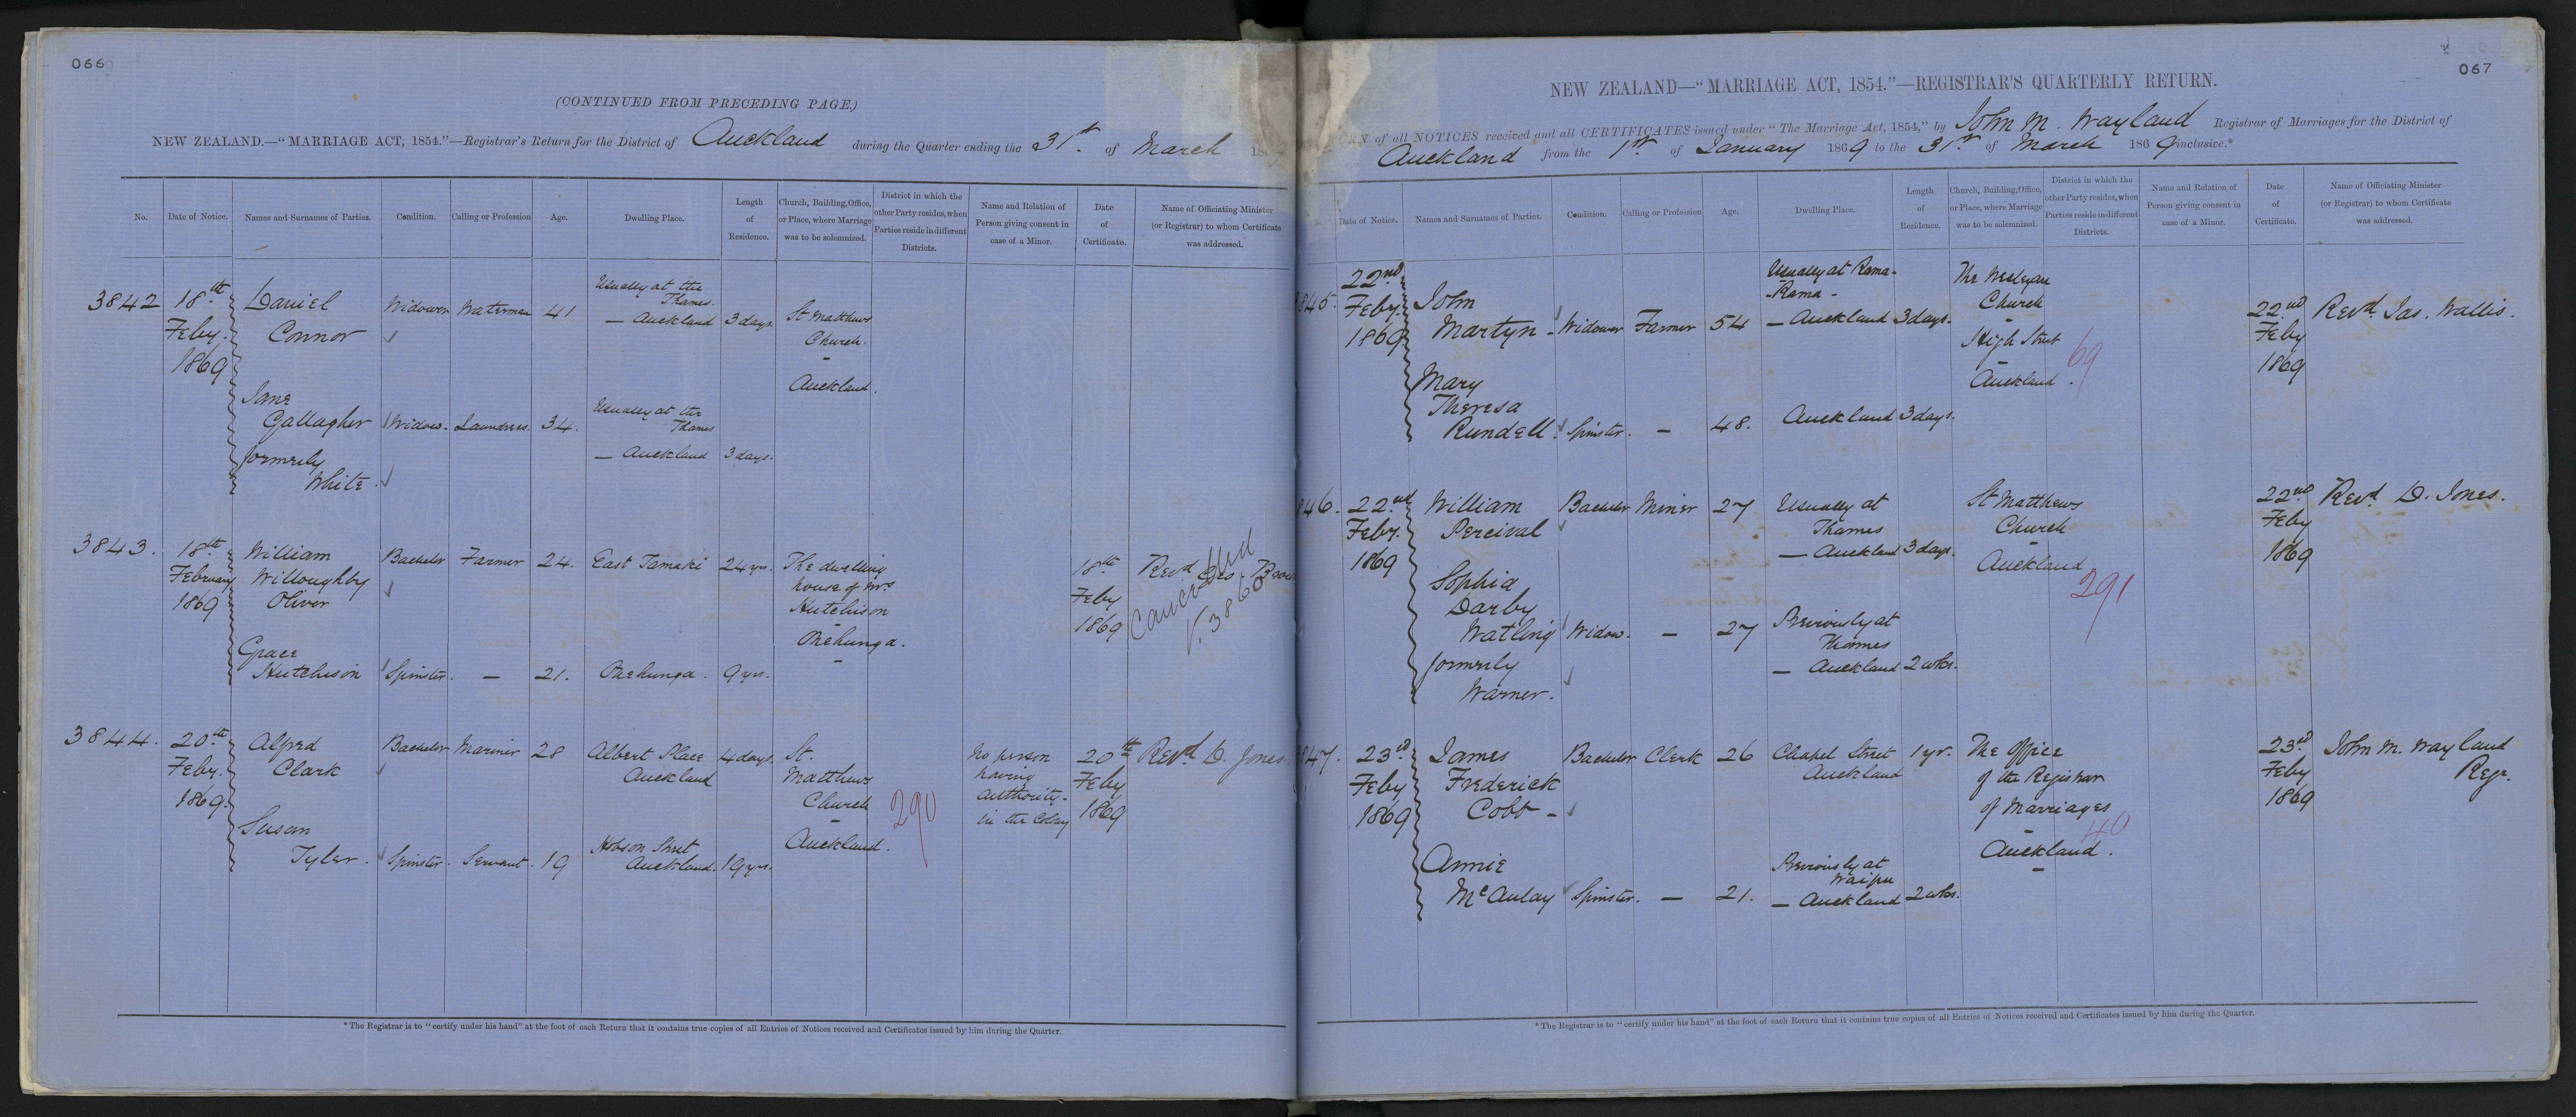 066
(CONTINUED FROM PRECEDING PAGE.)
NEW ZEALAND.—"MARRIAGE ACT, 1854."—Registrar's Return for the District of Auckland during the Quarter ending the 31st. of March 186
No.
Date of Notice.
Names and Surnames of Parties.
Condition.
Calling or Profession
Age.
Dwelling Place.
Length
of
Residence.
Church, Building, Office,
or Place, where Marriage
was to be solemnized.
District in which the
other Party resides, when
Parties reside in different
Districts.
Name and Relation of
Person giving consent in
case of a Minor.
Date
of
Certificate.
Name of Officiating Minister
(or Registrar) to whom Certificate
was addressed.
3842
18th
Feby.
1869
Daniel
Connor
Widower
Waterman
41
Usually at the
Thames.
— Auckland
3 days.
St Matthews
Church.
Auckland.
Jane
Gallagher
formerly
White.
Widow.
Laundress.
34.
Usually at the
Thames
— Auckland
3 days.
3843.
18th
February
1869
William
Willoughby
Oliver
Bachelor
Farmer
24.
East Tamaki
24 yrs.
The dwelling
house of Mrs
Hutchison
Onehunga.
18th
Feby
1869
Revd Geo. Brown
Cancelled
V. 3860
Grace
Hutchison
Spinster.
—
21.
Onehunga.
9 yrs.
3844.
20th
Feby.
1869.
Alfred
Clark
Bachelor
Mariner
28
Albert Place
Auckland
4 days.
St.
Matthews
Church
Auckland.
290
No person
having
authority
in the Colony
20th
Feby
1869
Revd D. Jones.
Susan
Tyler.
Spinster.
Servant.
19
Hobson Street
Auckland.
19 yrs.
*The Registrar is to "certify under his hand" at the foot of each Return that it contains true copies of all Entries of Notices received and Certificates issued by him during the Quarter.
067
NEW ZEALAND—"MARRIAGE ACT, 1854."—REGISTRAR'S QUARTERLY RETURN.
URN of all NOTICES received and all CERTIFICATES issued under "The Marriage Act, 1854," by John M. Wayland Registrar of Marriages for the District of
Auckland from the 1st. of January 1869 to the 31st of March 1869 inclusive.*
Date of Notice.
Names and Surnames of Parties.
Condition.
Calling or Profession
Age.
Dwelling Place.
Length
of
Residence.
Church, Building, Office,
or Place, where Marriage
was to be solemnized.
District in which the
other Party resides, when
Parties reside in different
Districts.
Name and Relation of
Person giving consent in
case of a Minor.
Date
of
Certificate.
Name of Officiating Minister
(or Registrar) to whom Certificate
was addressed.
845.
22nd
Feby.
1869.
John
Martyn
Widower
Farmer
54
Usually at Rama-
-Rama -
— Auckland
3 days.
The Wesleyan
Church
High Street
Auckland.
69
22nd
Feby
1869
Revd. Jas. Wallis.
Mary
Theresa
Rundell.
Spinster.
—
48.
Auckland
3 days.
846.
22nd
Feby.
1869
William
Percival
Bachelor
Miner
27
Usually at
Thames
— Auckland
3 days.
St Matthews
Church
Auckland.
291
22nd
Feby
1869
Revd D. Jones.
Sophia
Darby
Watling
formerly
Warner.
Widow.
—
27
Previously at
Thames
— Auckland
2 wks.
847.
23rd
Feby
1869
James
Frederick
Cobb
Bachelor
Clerk
26
Chapel Street
Auckland
1 yr.
The Office
of the Registrar
of Marriages
Auckland.
40
23rd
Feby
1869
John M. Wayland
Regr.
Annie
McAulay
Spinster.
—
21.
Previously at
Waipu
— Auckland
2 wks.
*The Registrar is to "certify under his hand" at the foot of each Return that it contains true copies of all Entries of Notices received and Certificates issued by him during the Quarter.